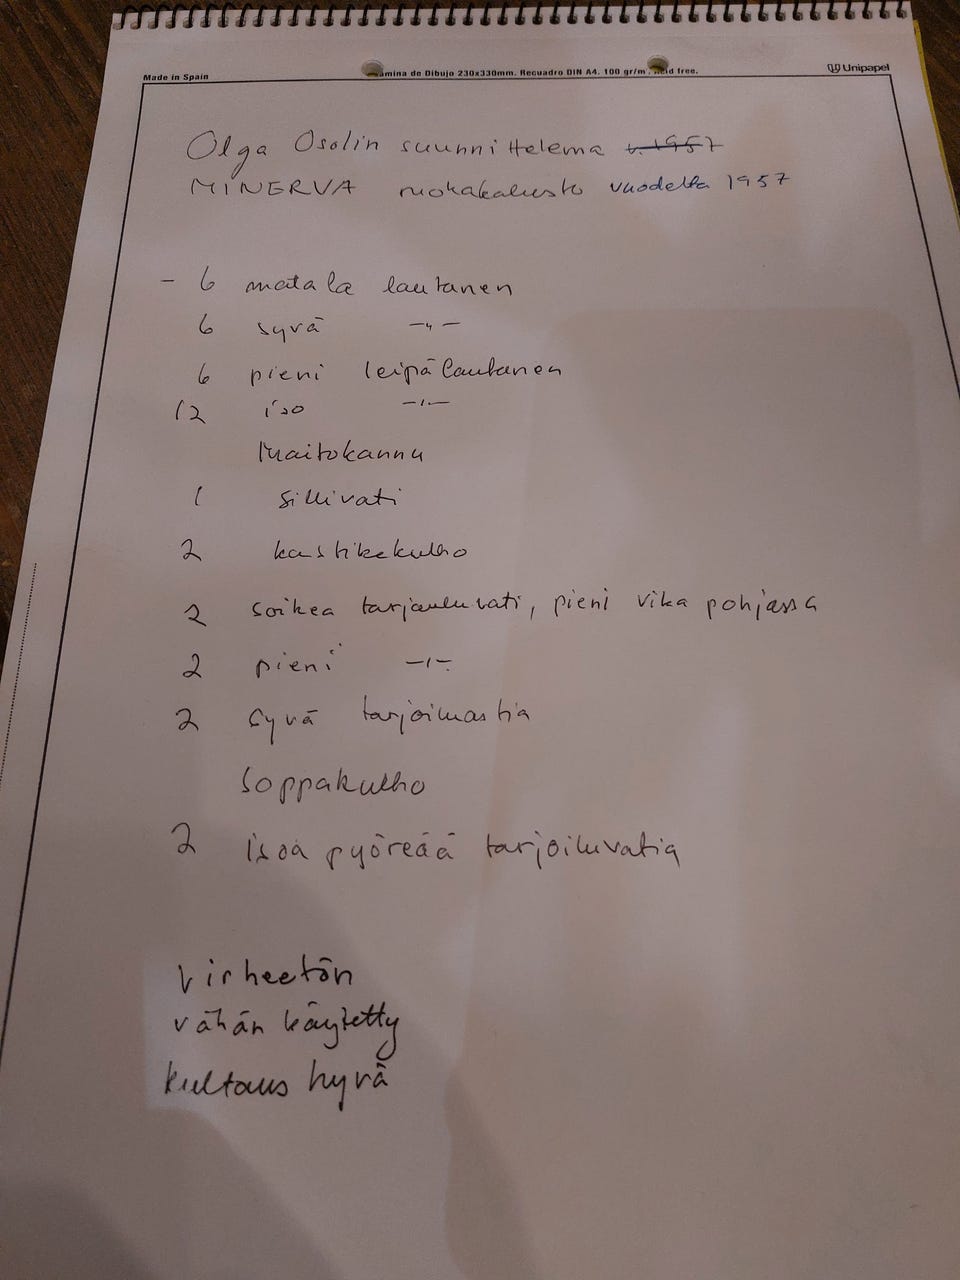 Made in Spain
amina de Dibujo 230x330mm. Recuadro DIN A4. 100 gr/m. id free.
Unipapel
Olga Osolin suunnittelema v. 1957
MINERVA ruokakalusto vuodelta 1957
- 6 matala lautanen
6 syvä -"-
6 pieni leipälautanen
12 iso -"-
Maitokannu
1 sillivati
2 kastikekulho
2 soikea tarjouluvati, pieni vika pohjassa
2 pieni -"-
2 syvä tarjoiluastia
Soppakulho
2 isoa pyöreää tarjoiluvatia
Virheetön
vähän käytetty
kultaus hyvä